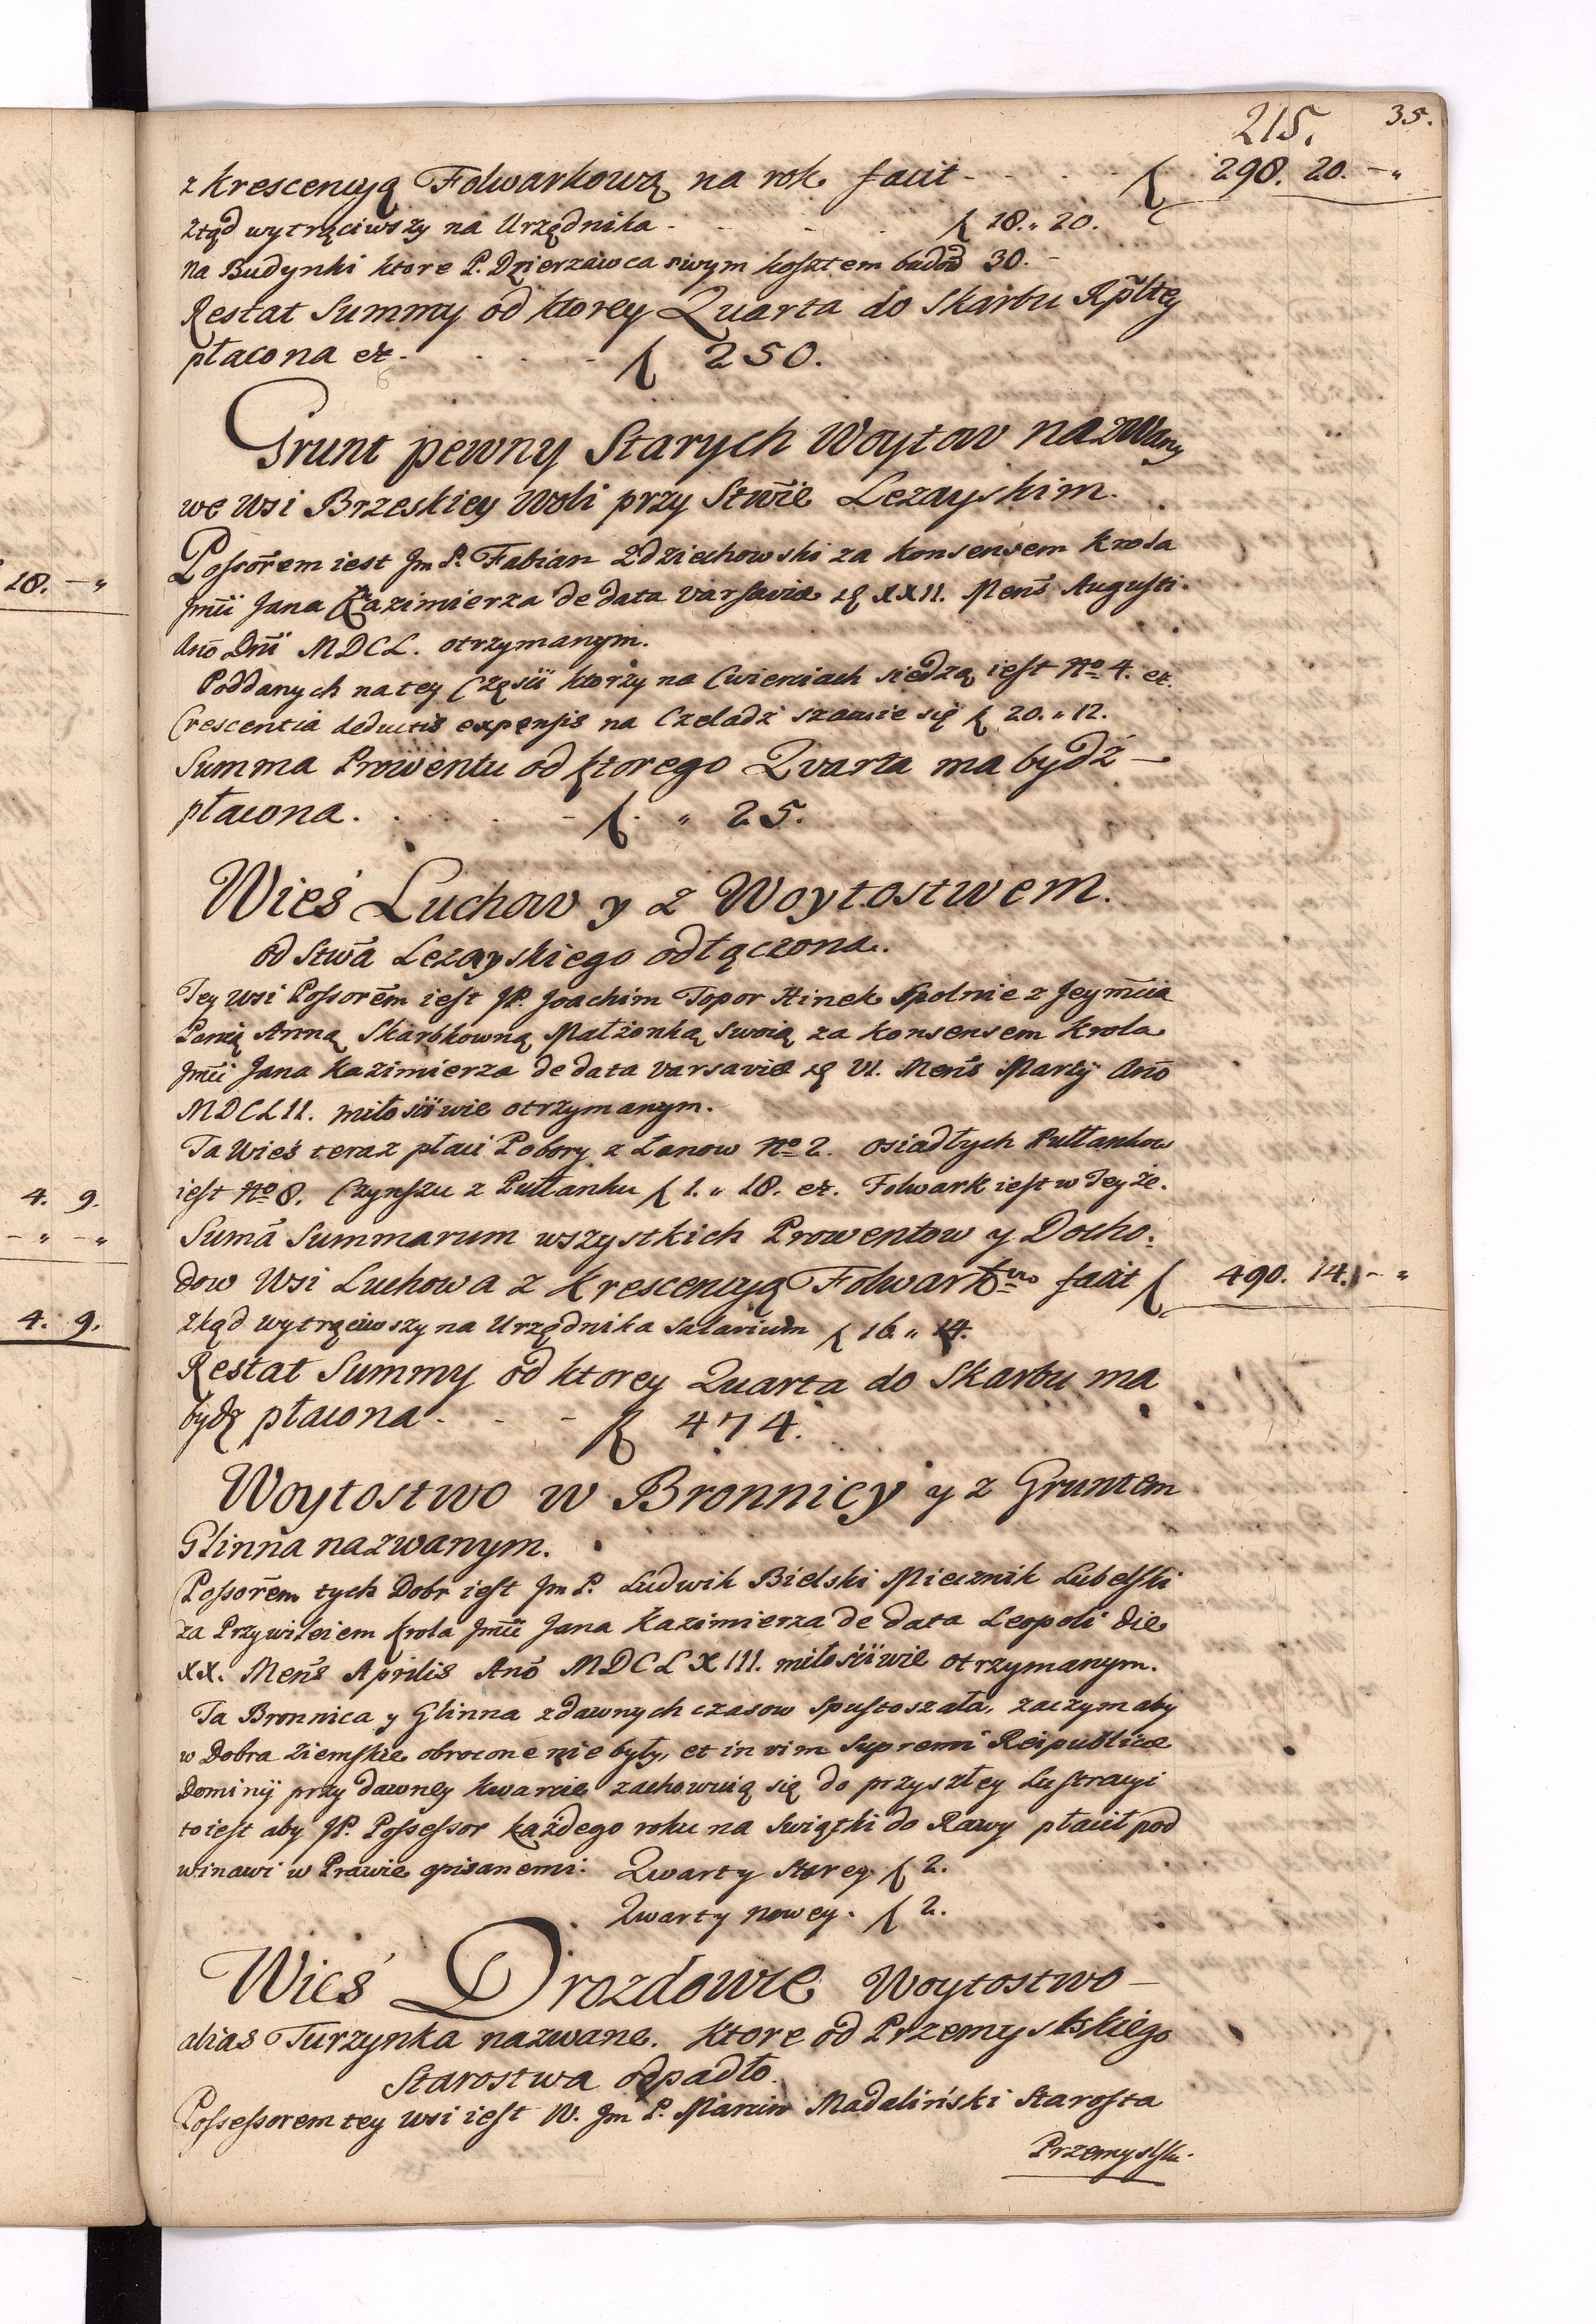 215. 35.
z Krescencyą Folwarkową na rok facit - - - - ƒ 298. 20. - „
ztąd wytrąciwszy na Urzędnika - - - ƒ 18. „ 20.
Na Budynki ktore P. Dzierzawca swym kosztem budow 30. -
Restat Summy od ktorey Quarta do Skarbu Rpltey
płacona etc. - - - - ƒ 250.
Grunt pewny Starych Woytow nazwany
we Wsi Brzeskiey Woli przy Stwie Lezayskim.
Possorem iest Jm P. Fabian Zdziechowski za konsensem Krola
Jmci Jana Kazimierza de data Varsavia XXII. Mens Augusti.
Ano Dni MDCL. otrzymanym.
Poddanych na tey Częsci ktorzy na Cwierciach siedzą iest No 4. etc.
Crescentia deductis expensis na Czeladź szacuie się ƒ 20. „ 12.
Summa Prowentu od ktorego Qvarta ma bydź -
płacona. - - - - ƒ. „ 25.
Wieś Luchow y z Woytostwem.
od Stwa Lezayskiego odłączona.
Tey Wsi Possorem iest JP. Joachim Topor Hinek Spolnie z Jeymcia
Panią Anną Skarbkowną Małżonką swoią za konsensem Krola
Jmci Jana Kazimierza de data Varsavie VI. Mens Martij Ano
MDCLII. miłosciwie otrzymanym.
Ta Wieś teraz płaci Pobory z Łanow No 2. osiadłych Pułłankow
iest No 8. Czynszu z Pułłanku ƒ 1. „ 18. etc. Folwark iest w Teyże.
Suma Summarum wszystkich Prowentow y Docho:
dow Wsi Luchowa z Krescencyą Folwark facit ƒ 490. 14. - „
Ztąd wytrąciwszy na Urzędnika Salarium ƒ 16. „ 14.
Restat Summy od ktorey Quarta do Skarbu ma
bydź płacona - - - ƒ 474.
Woytostwo w Bronnicy y z Gruntem
Glinna nazwanym.
Possorem tych Dobr iest Jm P. Ludwik Bielski Miecznik Lubelski
za Przywileiem Krola Jmci Jana Kazimierza de data Leopoli die
XX. Mens Aprilis Ano MDCLXIII. miłosciwie otrzymanym.
Ta Bronnica y Glinna zdawnych czasow Spustoszała, zaczym aby
w Dobra Ziemskie obrocone nie były, et in vim Supremi Reipublicae
Dominij przy dawney kwarcie zachowuią się do przyszłey Lustracyi
to iest aby JP. Possessor każdego roku na Swiątki do Rawy płacił pod
winami w Prawie opisanemi: Qwarty Starey ƒ 2.
Qwarty nowey. ƒ 2.
Wieś Drozdowie Woytostwo -
alias Turzynka nazwane. ktore od Przemyslskiego
Starostwa odpadło.
Possessorem tey wsi iest W. Jm P. Marcin Madaliński Starosta
Przemyslski.
18. - „
4. 9.
- „ - „
4. 9.